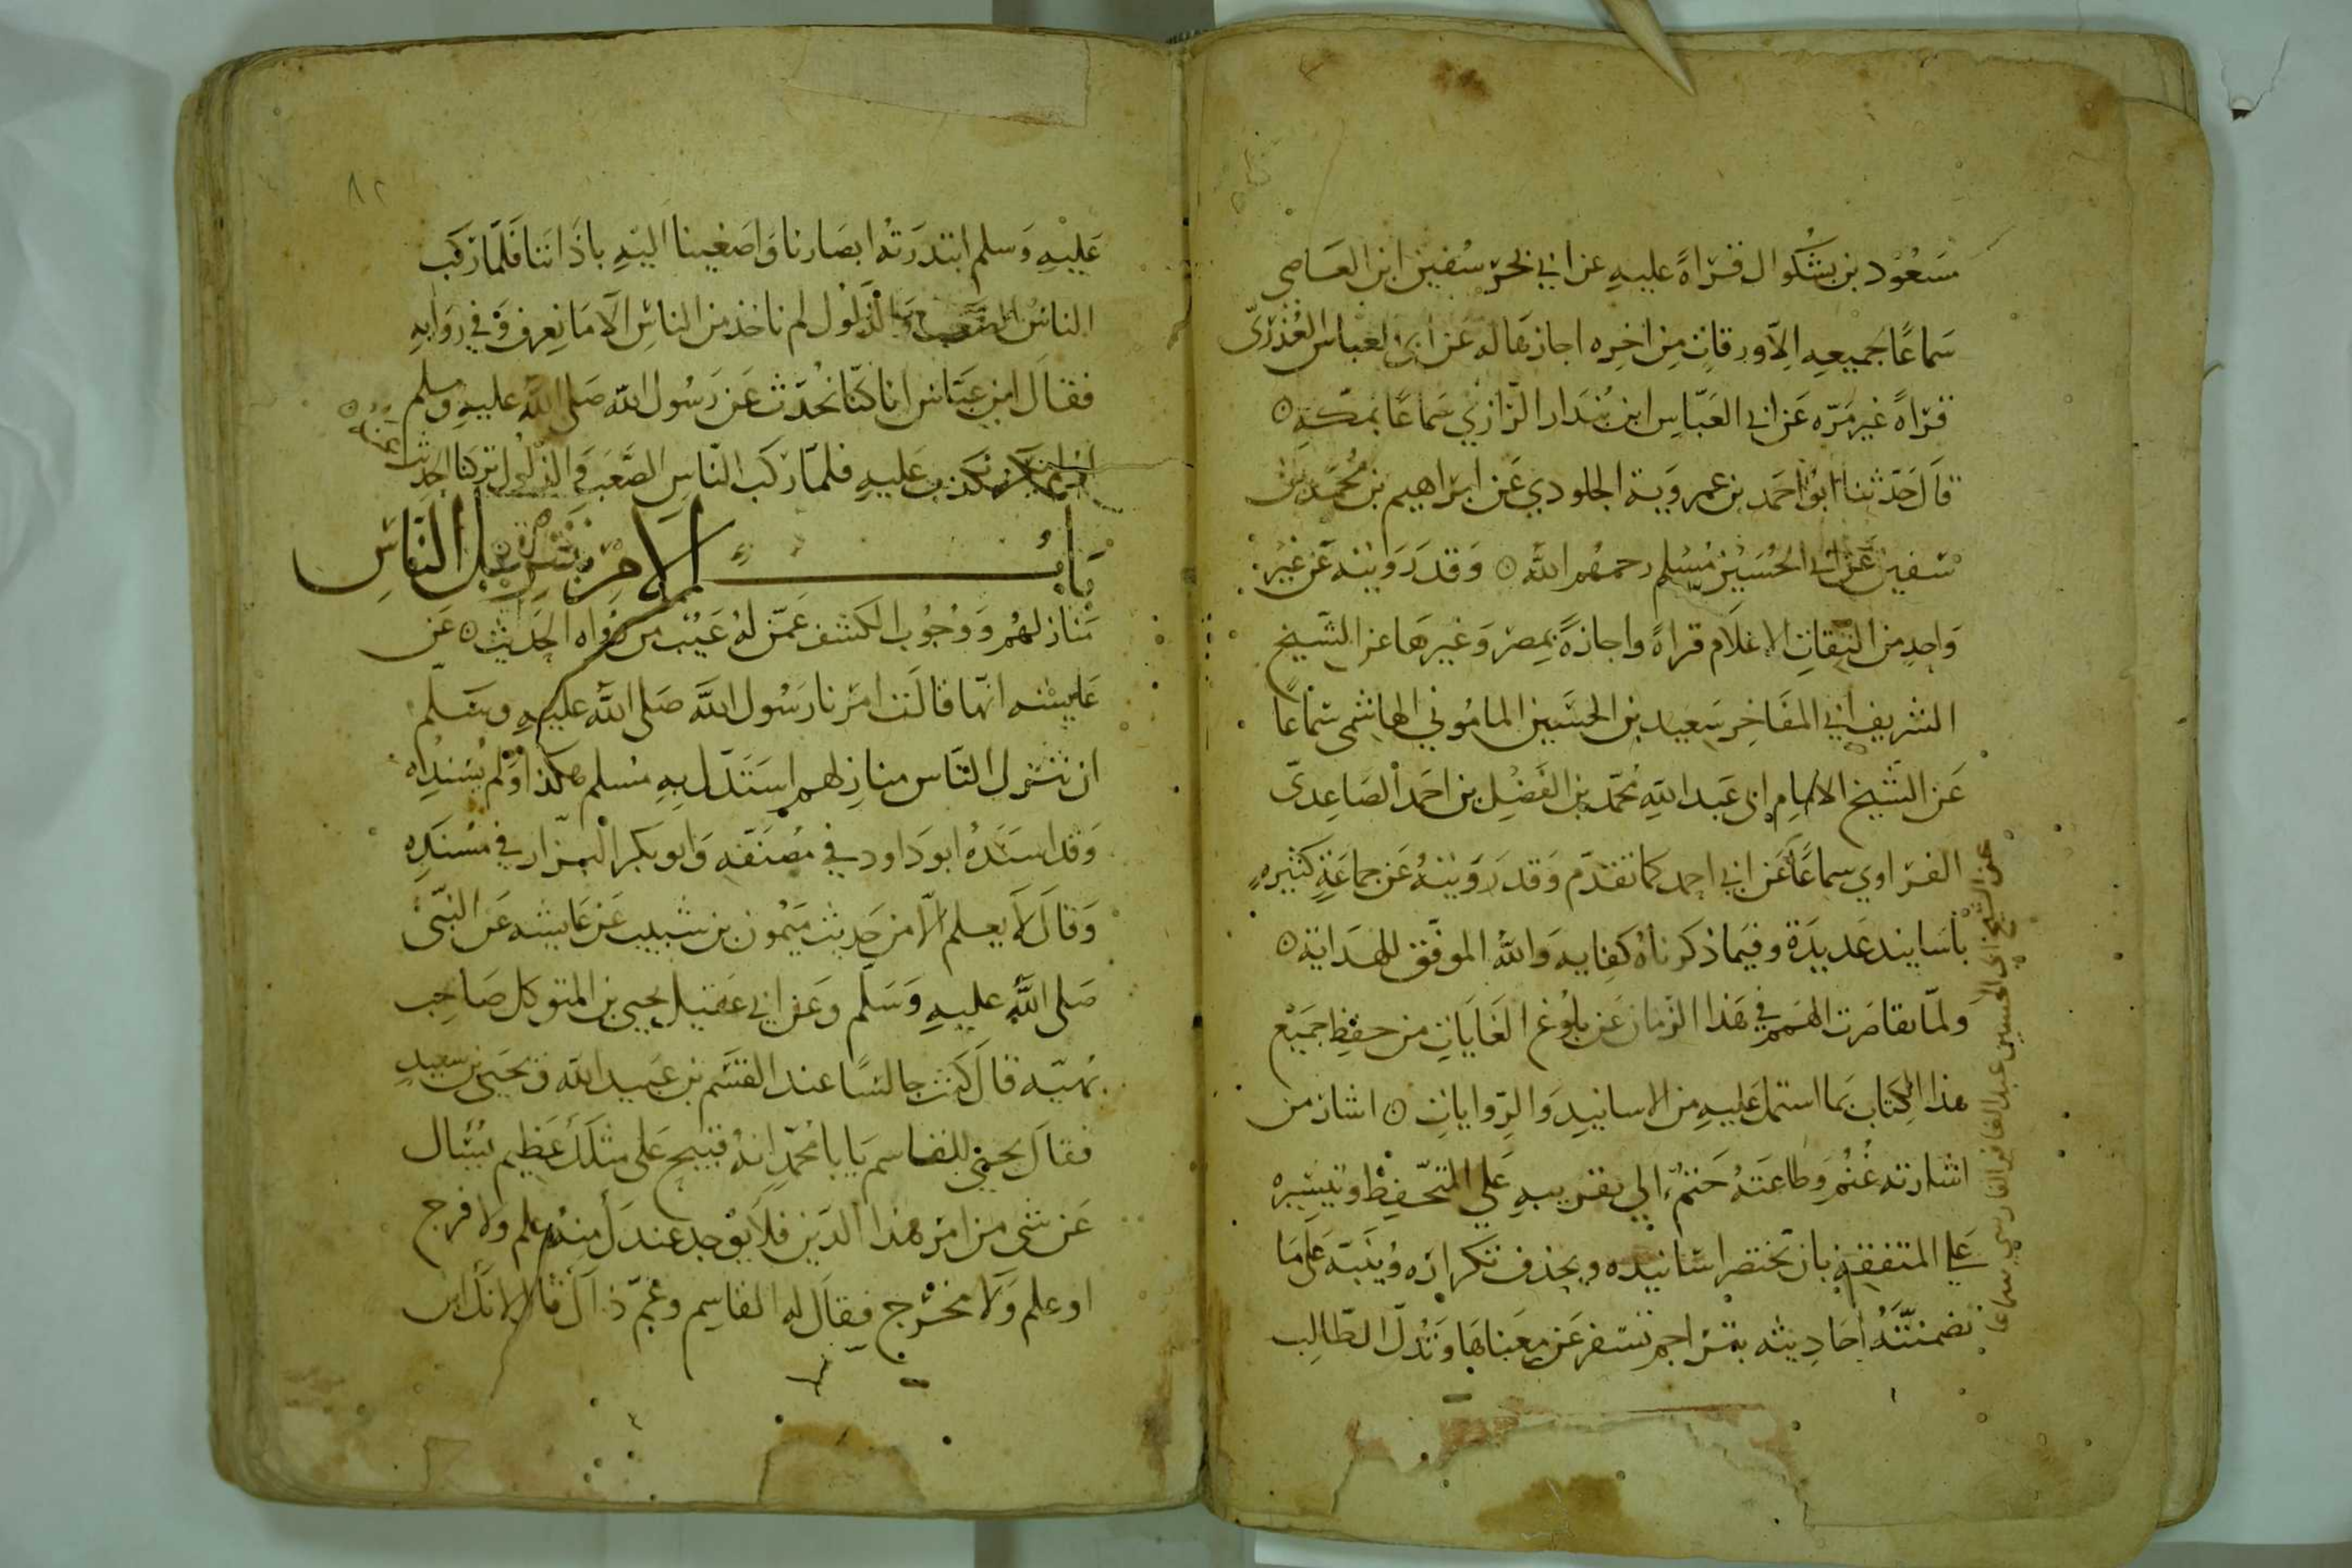 مسعود بن بشكوال قراةً عليهِ عن ابي بحر سفين ابن العاصي
سماعًا لجميعهِ الا ورقاتٍ من اخره اجازها له عن ابي العباس العُذريّ
قراةً غير مرّه عن ابي العبّاس ابن بُندار الرّازي سماعًا بمكّةِ
قال حدّثنا ابو احمد بن عمروية الجلودي عن ابراهيم بن محمد بن
سفين عن ابي الحسين مُسلم رحمهُم الله وقد رويته عن غير
واحدٍ من الثقاتِ الاعلام قراةً واجازةً بمصر وغيرها عن الشّيخ
الشريف ابي المفاخر سعيد بن الحسين الماموني الهاشمي سماعًا
عن الشيخ الامام ابي عبد الله محمّد بن الفضل بن احمد الصاعديّ
الفراوي سماعًا عن ابي احمد كما تقدّم وقد رويته عن جماعةٍ كثيرهٍ
عن الشيخ ابي الحسين عبد الغافر الفارسي سماعا
بأسانيد عديدة وفيما ذكرناه كفايه والله الموفّق للهداية
ولمّا تقاصرت الهمم في هذا الزمان عن بلوغ الغايات من حفظ جميع
هذا الكتاب بما اشتمل عليهِ من الاسانيدِ والرّواياتِ اشار من
اشارته غُنمٌ وطاعتهُ حتمٌ الي تقريبهِ علي المتحّفظ وتيسيره
علي المتفقهِ بان تختصر اسانيده ويحذف تكراره وينبّه على ما
تضمنتهُ احاديثه بتراجم تسفر عن معناها وتدلّ الطّالب
٨٢
عليهِ وسلم ابتدرته ابصارنا واصغينا اليهِ باذاننا فلمّا ركب
الناسُ الصعب والذلول لم ناخذ من الناس الّا ما نعرف وفي روايهٍ
فقال ابن عبّاس انا كنّا نحُدّث عن رسُول الله صلى الله عليه وسلم
اذ لم يكن يكذب عليهِ فلمّا ركب النّاس الصّعب والذّلول تركنا الحديث عنه
بابُ الامر بتنزيل الناس
منازلهُم ووجُوب الكشف عمّن لهُ عيب من رُواه الحديث عن
عايشه انّها قالت امرنا رسُول الله صلى الله عليهِ وسلّم
ان ننزل النّاس منازلهم استدّل بهِ مُسلم هكذا ولم يسنده
وقد اسندهُ ابو داود في مصنفه وابو بكر البزّار في مُسندِه
وقال لا يعلم الّا من حديث ميمون بن شبيب عن عايشه عن النبّى
صلى اللهُ عليهِ وسلّم وعن ابي عقيل يحيى بن المتوكل صاحب
بهيّه قال كنت جالسًا عند القسم بن عبيد الله ويحيى بن سعيدٍ
فقال يحيى للقاسم يا با محمّد انهُ قبيح على مثلك عظيم تُسْال
عن شي من امر هذا الدّين فلا يوجد عندك منهُ علم ولا فرج
او علم ولا مخرج فقال له القاسم وعمّ ذاك قال لانك ابن